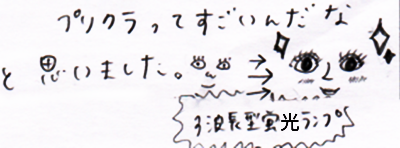 プリクラってすごいんだな
と思いました。
3波長型蛍光ランプ